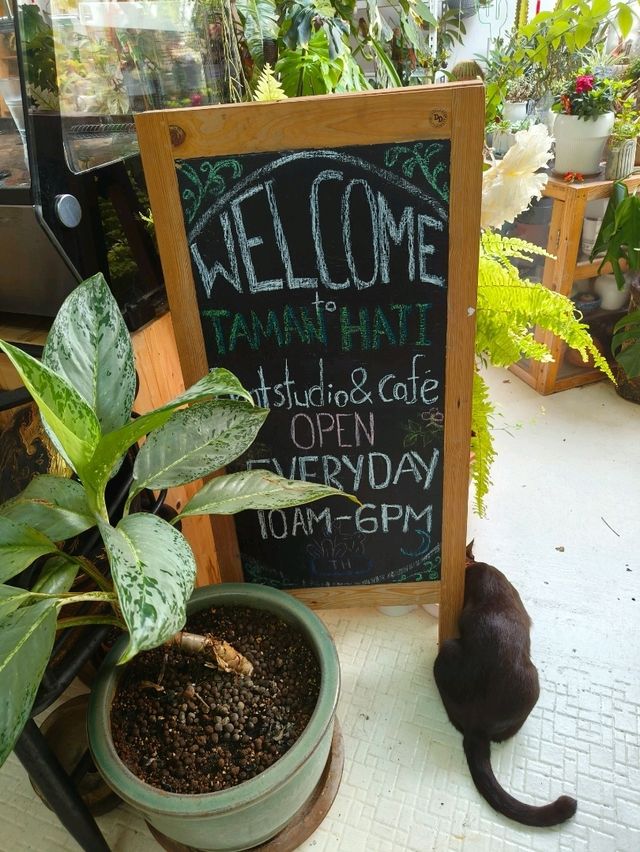 WELCOME
to
TAMAN HATI
studio & café
OPEN
EVERYDAY
10AM-6PM
TH